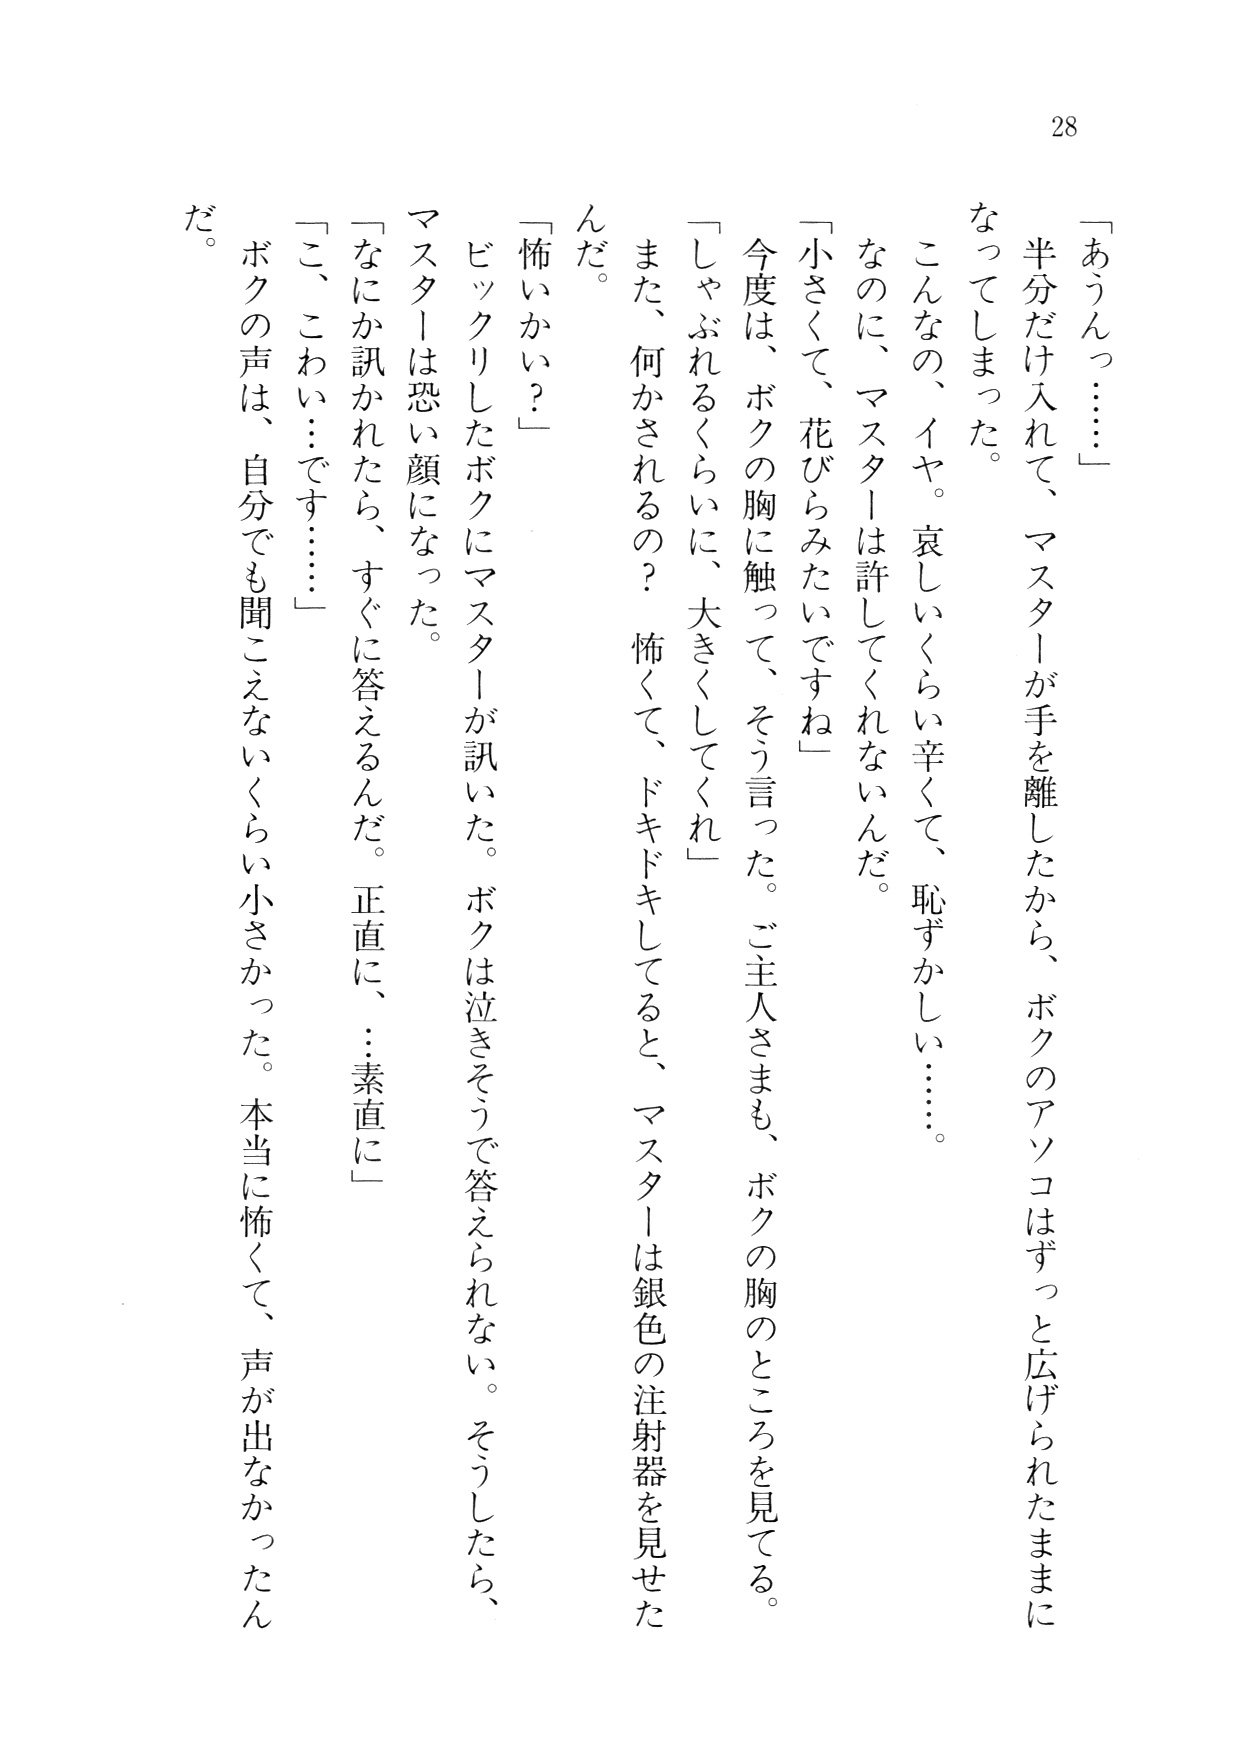 28
「あうんっ……」
半分だけ入れて、マスターが手を離したから、ボクのアソコはずっと広げられたままに
なってしまった。
こんなの、イヤ。哀しいくらい辛くて、恥ずかしい……。
なのに、マスターは許してくれないんだ。
「小さくて、花びらみたいですね」
今度は、ボクの胸に触って、そう言った。ご主人さまも、ボクの胸のところを見てる。
「しゃぶれるくらいに、大きくしてくれ」
また、何かされるの？　怖くて、ドキドキしてると、マスターは銀色の注射器を見せた
んだ。
「怖いかい？」
ビックリしたボクにマスターが訊いた。ボクは泣きそうで答えられない。そうしたら、
マスターは恐い顔になった。
「なにか訊かれたら、すぐに答えるんだ。正直に、…素直に」
「こ、こわい…です……」
ボクの声は、自分でも聞こえないくらい小さかった。本当に怖くて、声が出なかったん
だ。